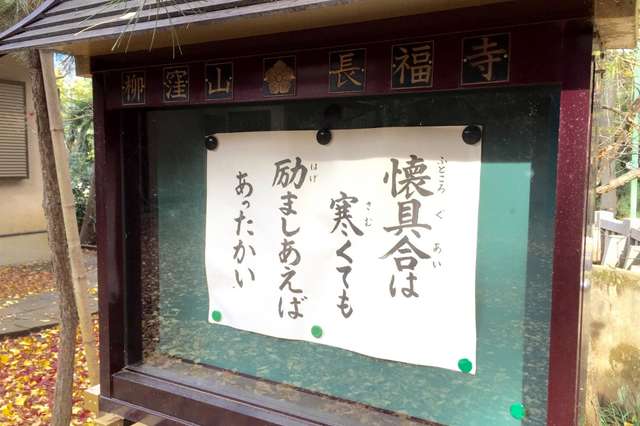 柳窪山 長福寺
懐具合は
ふところ ぐ あい
寒くても
さむ
励ましあえば
はげ
あったかい